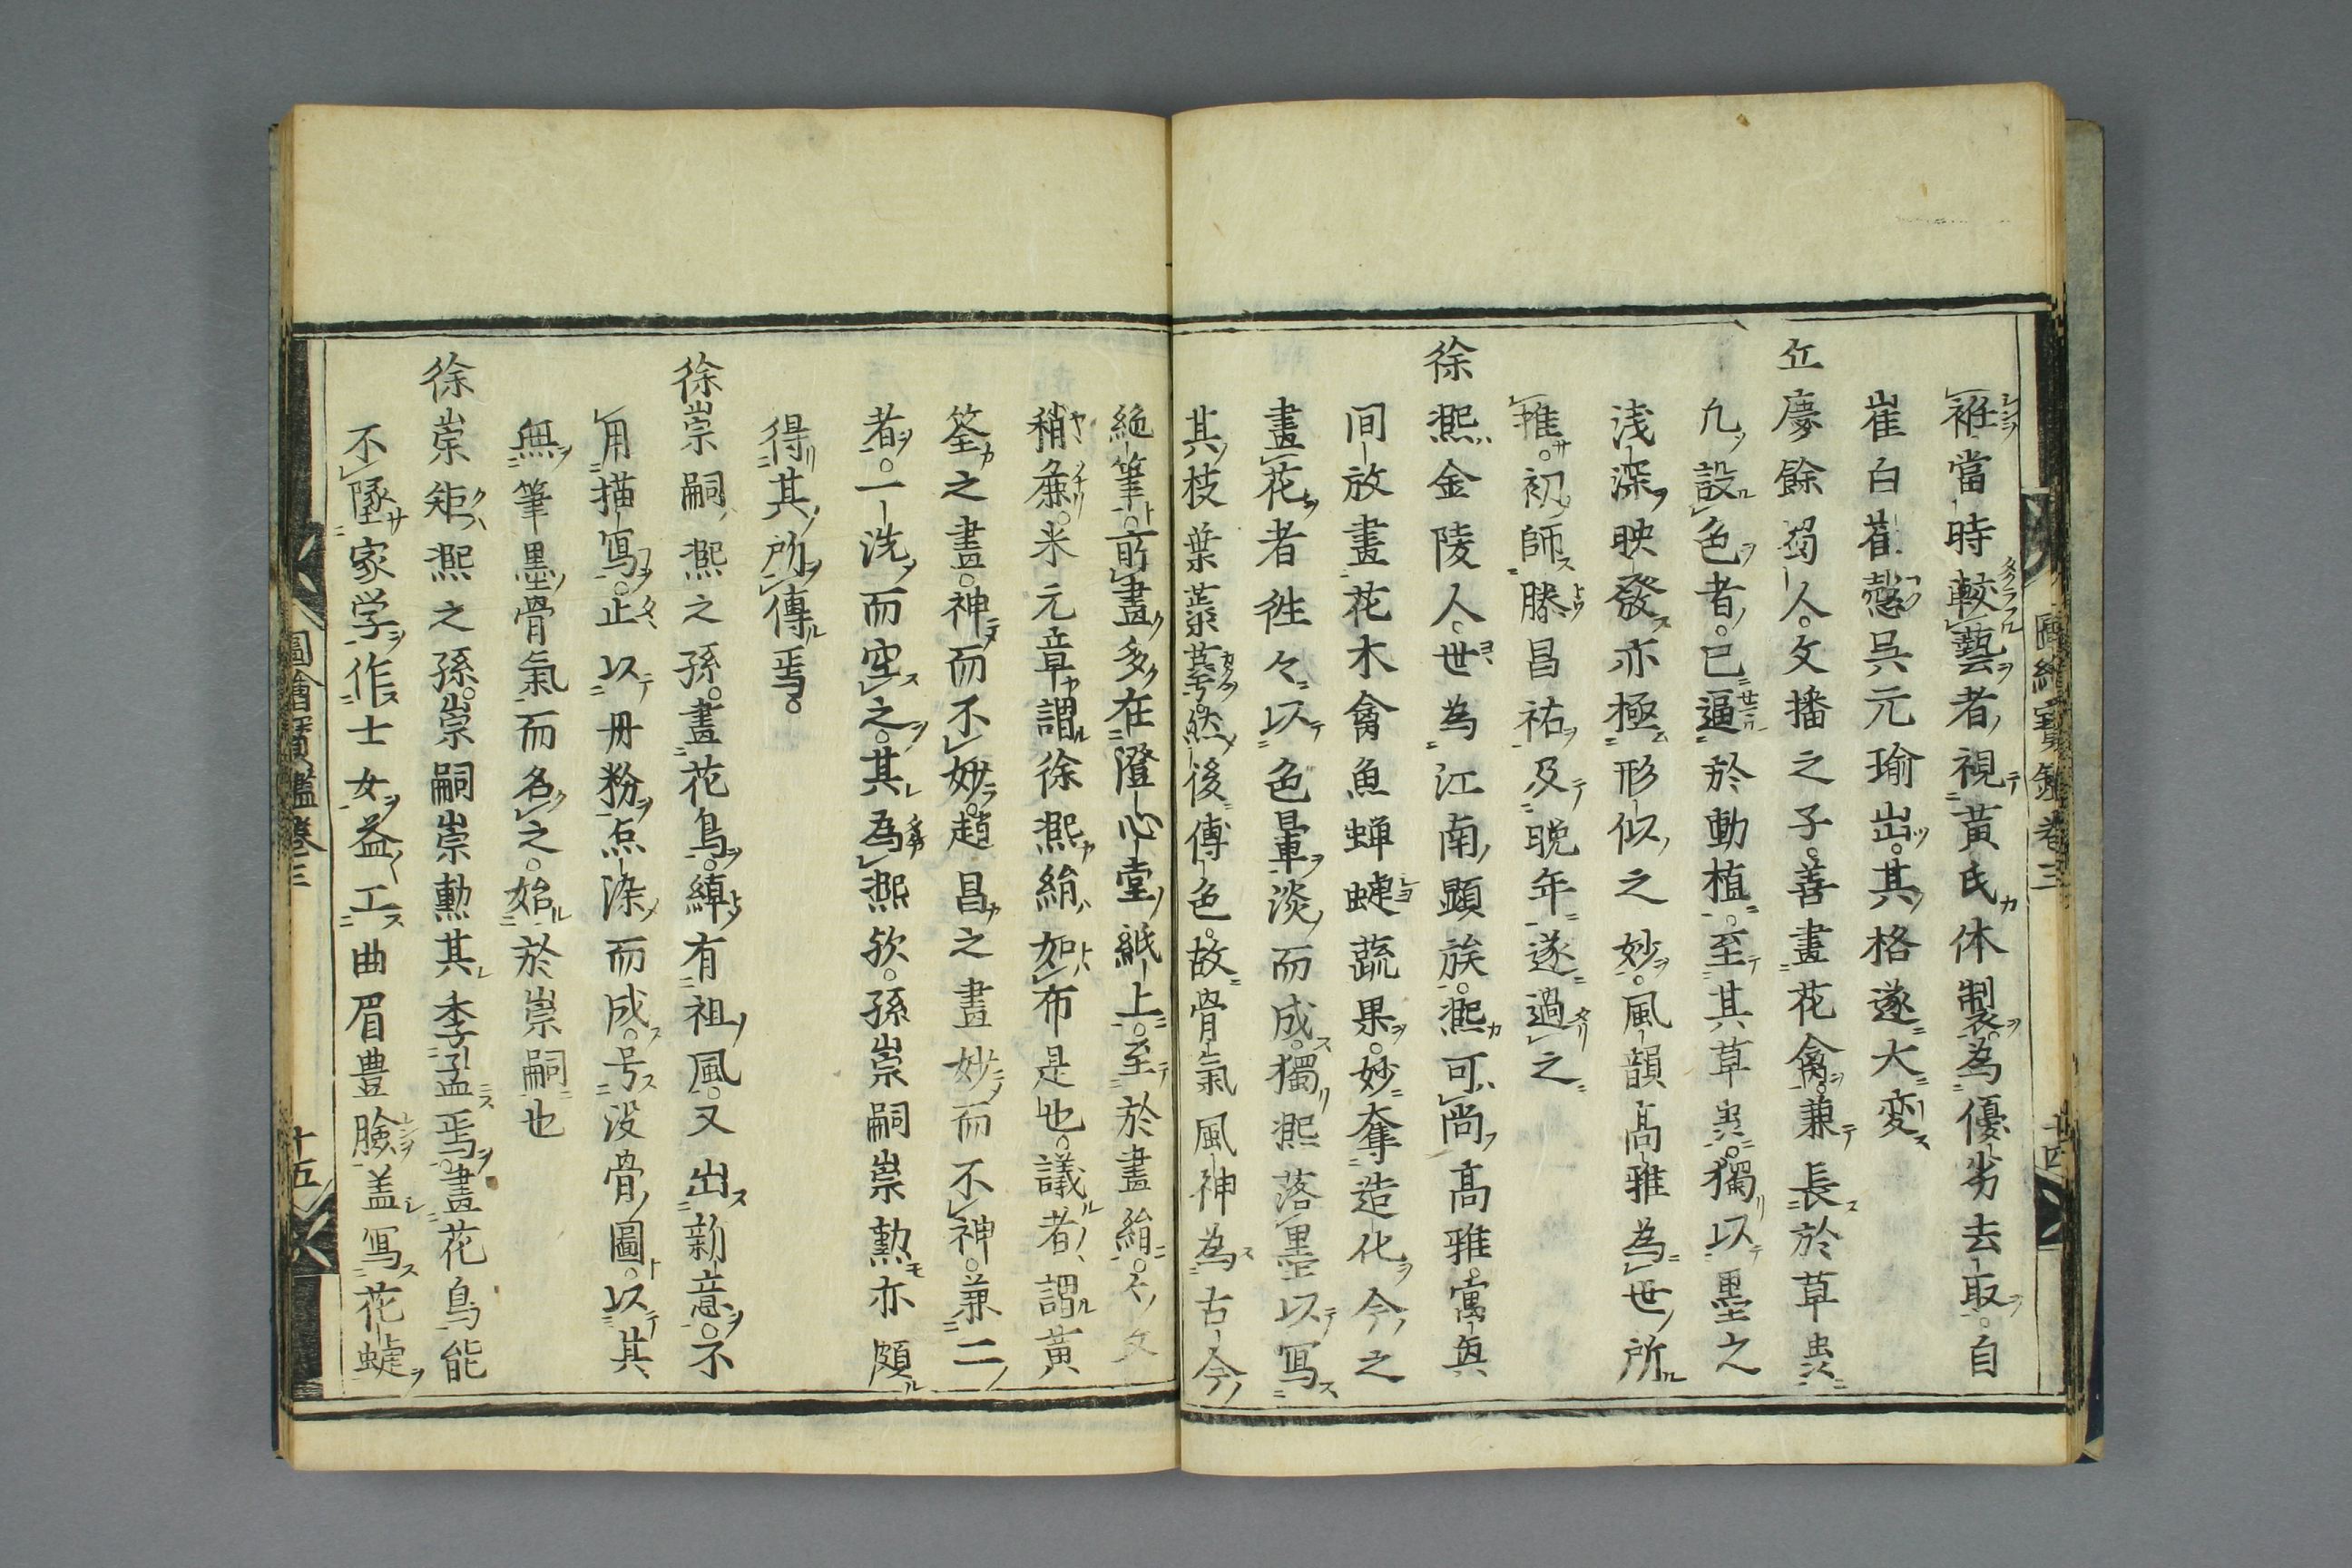 袵當時較藝者視黃氏体製為優劣去取自
崔白崔愨吳元瑜出其格遂大変
丘慶餘蜀人文播之子善畫花禽兼長於草虫
九設色者已逼於動植至其草虫獨以墨之
浅深映發亦極形似之妙風韻高雅為世所
推初師滕昌祐及晩年遂過之
徐熙金陵人世為江南顕族熙可尚高雅寓真
间放畫花木禽魚蝉蜨蔬果妙奪造化今之
畫花者徃々以色暈淡而成獨熙落墨以写
其枝葉蕊蕚然後傅色故骨氣風神為古今
絶筆前畫多在澄心堂紙上至於畫絹文
稍麁米元章謂徐熙絹如布是也議者謂黄
筌之畫神而不妙趙昌之畫妙而不神兼二
者一洗而空之其為熙欤孫崇嗣崇勲亦頗
得其所傳焉
徐崇嗣熙之孫畫花鳥綽有祖風又出新意不
用描写止以丹粉点染而成号没骨圖以其
無筆墨骨氣而名之始於崇嗣也
徐崇矩熙之孫崇嗣崇勲其李孟焉畫花鳥能
不墜家学作士女益工曲眉豊臉盖写花蜨
圖繪寳鑑卷三
十四
圖繪寳鑑卷三
十五